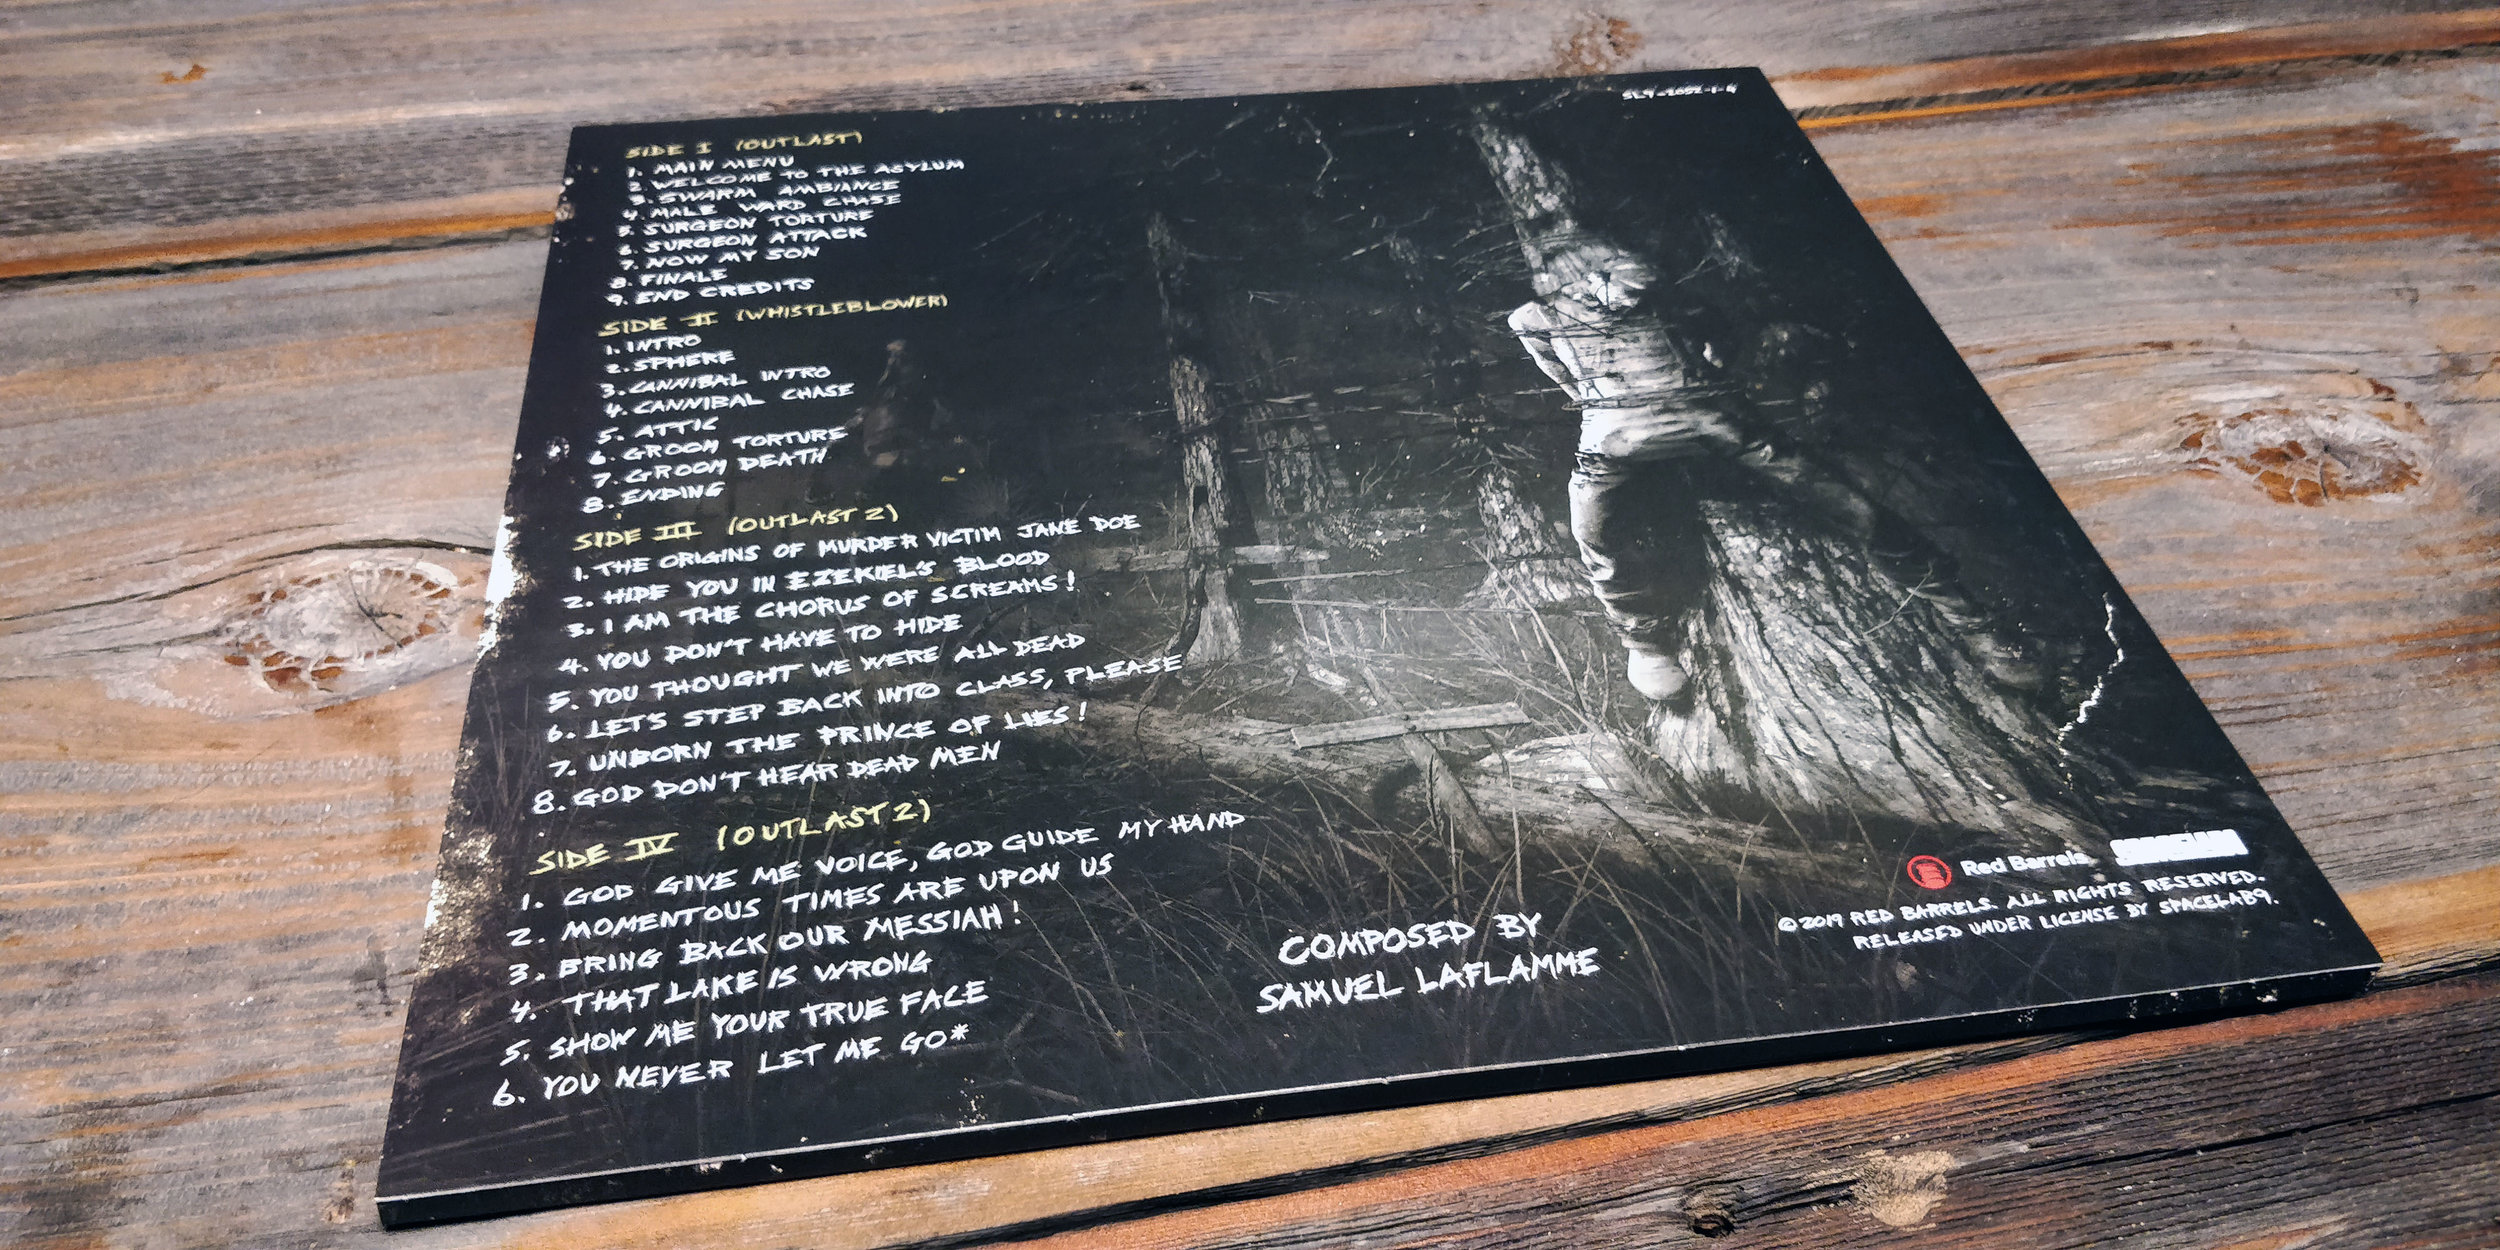 SIDE I (OUTLAST)
1. MAIN MENU
2. WELCOME TO THE ASYLUM
3. SWARM AMBIANCE
4. MALE WARD CHASE
5. SURGEON TORTURE
6. SURGEON ATTACK
7. NOW MY SON
8. FINALE
9. END CREDITS
SIDE II (WHISTLEBLOWER)
1. INTRO
2. SPHERE
3. CANNIBAL INTRO
4. CANNIBAL CHASE
5. ATTIC
6. GROOM TORTURE
7. GROOM DEATH
8. ENDING
SIDE III (OUTLAST 2)
1. THE ORIGINS OF MURDER VICTIM JANE DOE
2. HIDE YOU IN EZEKIEL'S BLOOD
3. I AM THE CHORUS OF SCREAMS!
4. YOU DON'T HAVE TO HIDE
5. YOU THOUGHT WE WERE ALL DEAD
6. LET'S STEP BACK INTO CLASS, PLEASE
7. UNBORN THE PRINCE OF LIES!
8. GOD DON'T HEAR DEAD MEN
SIDE IV (OUTLAST 2)
1. GOD GIVE ME VOICE, GOD GUIDE MY HAND
2. MOMENTOUS TIMES ARE UPON US
3. BRING BACK OUR MESSIAH!
4. THAT LAKE IS WRONG
5. SHOW ME YOUR TRUE FACE
6. YOU NEVER LET ME GO*
COMPOSED BY
SAMUEL LAFLAMME
Red Barrels
© 2019 RED BARRELS. ALL RIGHTS RESERVED.
RELEASED UNDER LICENSE BY SPACELAB9.